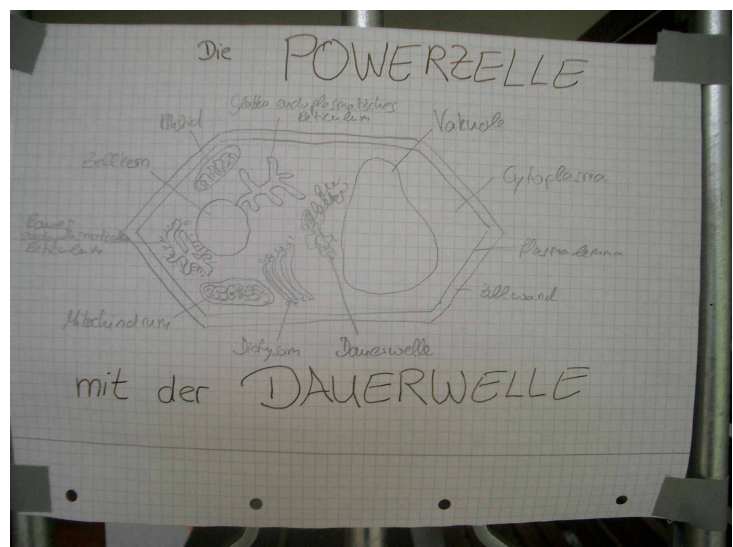 Die POWERZELLE
Glattes endoplasmatisches
Reticulum
Plastid
Vakuole
Zellkern
Cytoplasma
Raues
endoplasmatisches
Reticulum
Plasmalemma
Zellwand
Mitochindrium
Dictyosom
Dauerwelle
mit der DAUERWELLE